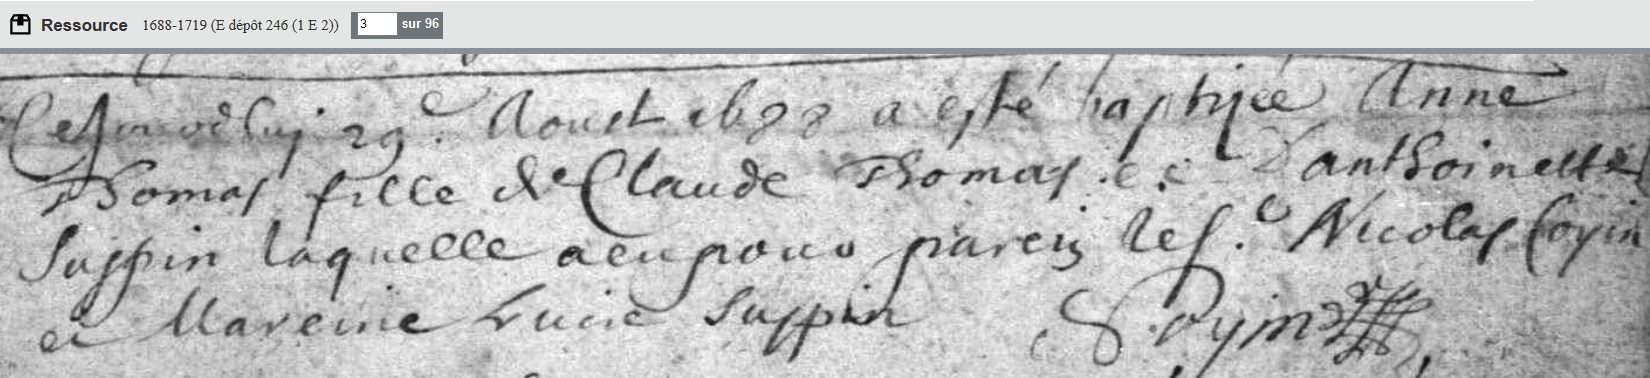 Ressource 1688-1719 (E dépôt 246 (1 E 2)) 3 sur 96
Cejourdhuj 29e Aoust 1688 a esté baptisée Anne
Thomas fille de Claude Thomas et d'anthoinette
Suppin laquelle a eu pour parein le sr Nicolas
et Mareine Lucie Suppin